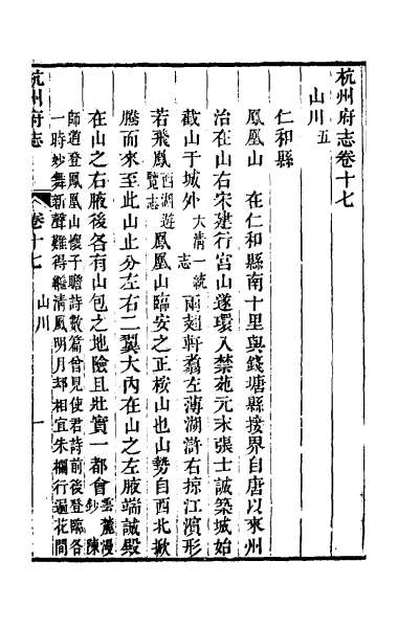 杭州府志卷十七
山川五
仁和縣
鳳凰山　在仁和縣南十里與錢塘縣接界自唐以來州
治在山右宋建行宮山遂環入禁苑元末張士誠築城始
截山于城外大清一統志兩翅軒翥左薄湖滸右掠江濱形
若飛鳳西湖遊覽志鳳凰山臨安之正桉山也山勢自西北掀
騰而來至此山止分左右二翼大內在山之左腋端誠殿
在山之右腋後各有山包之地險且壯實一都會雲麓漫鈔陳
師道登鳳凰山懷子瞻詩數篇曾見使君詩前後登臨各
一時妙舞新聲難得繼清風明月却相宜朱欄行遍花間
杭州府志
卷十七
山川
一